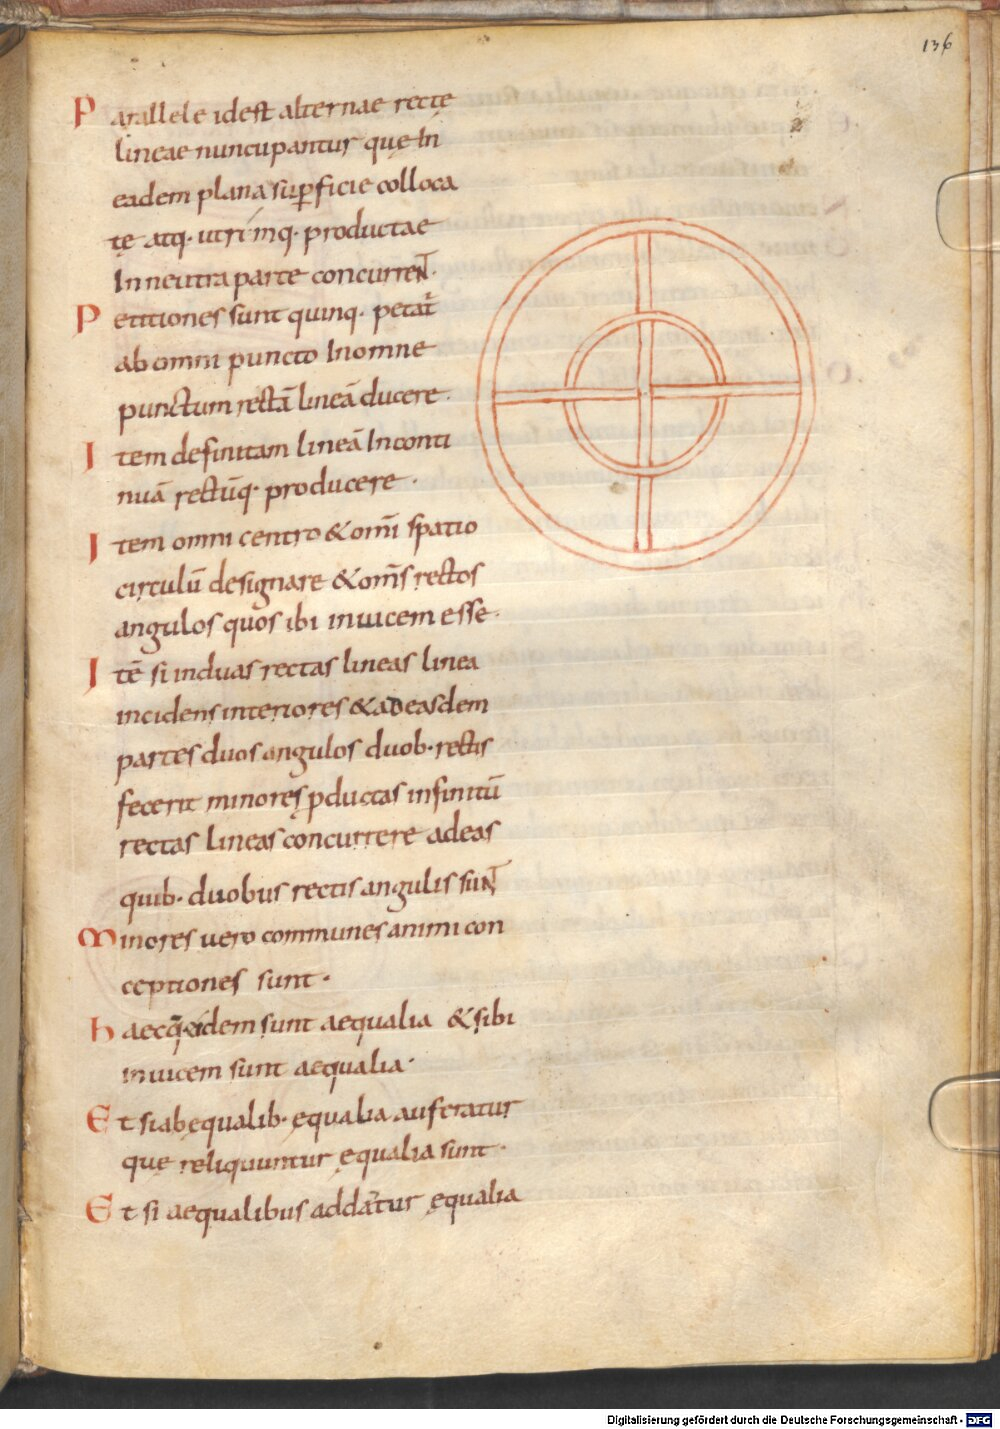 136
Parallele idest alternae rectę
lineae nuncupantur quę In
eadem plana suꝑficie colloca
tę atq· utrimq· productae
In neutra parte concurrenт̄·
Petitiones sunt quinq· petat̄
ab omni puncto In omne
punctum rectā lineā ducere·
Item definitam lineā In conti
nuā rectūq· producere·
Item omni centro & om̄i spatio
circulū designare & om̄s rectos
angulos quos ibi inuicem esse·
Itē si in duas rectas lineas linea
incidens interiores & ad easdem
partes duos angulos duob· rectis
fecerit minores ꝓductas in finitū
rectas lineas concurrere ad eas
quib· duobus rectis angulis sunт̄
Minores uero communes animi con
ceptiones sunt·
Haec q̄ eidem sunt aequalia & sibi
inuicem sunt aequalia·
Et si ab ęqualib· ęqualia auferatur
quę reliquuntur ęqualia sunt·
Et si aequalibus addātur ęqualia
Digitalisierung gefördert durch die Deutsche Forschungsgemeinschaft - DFG